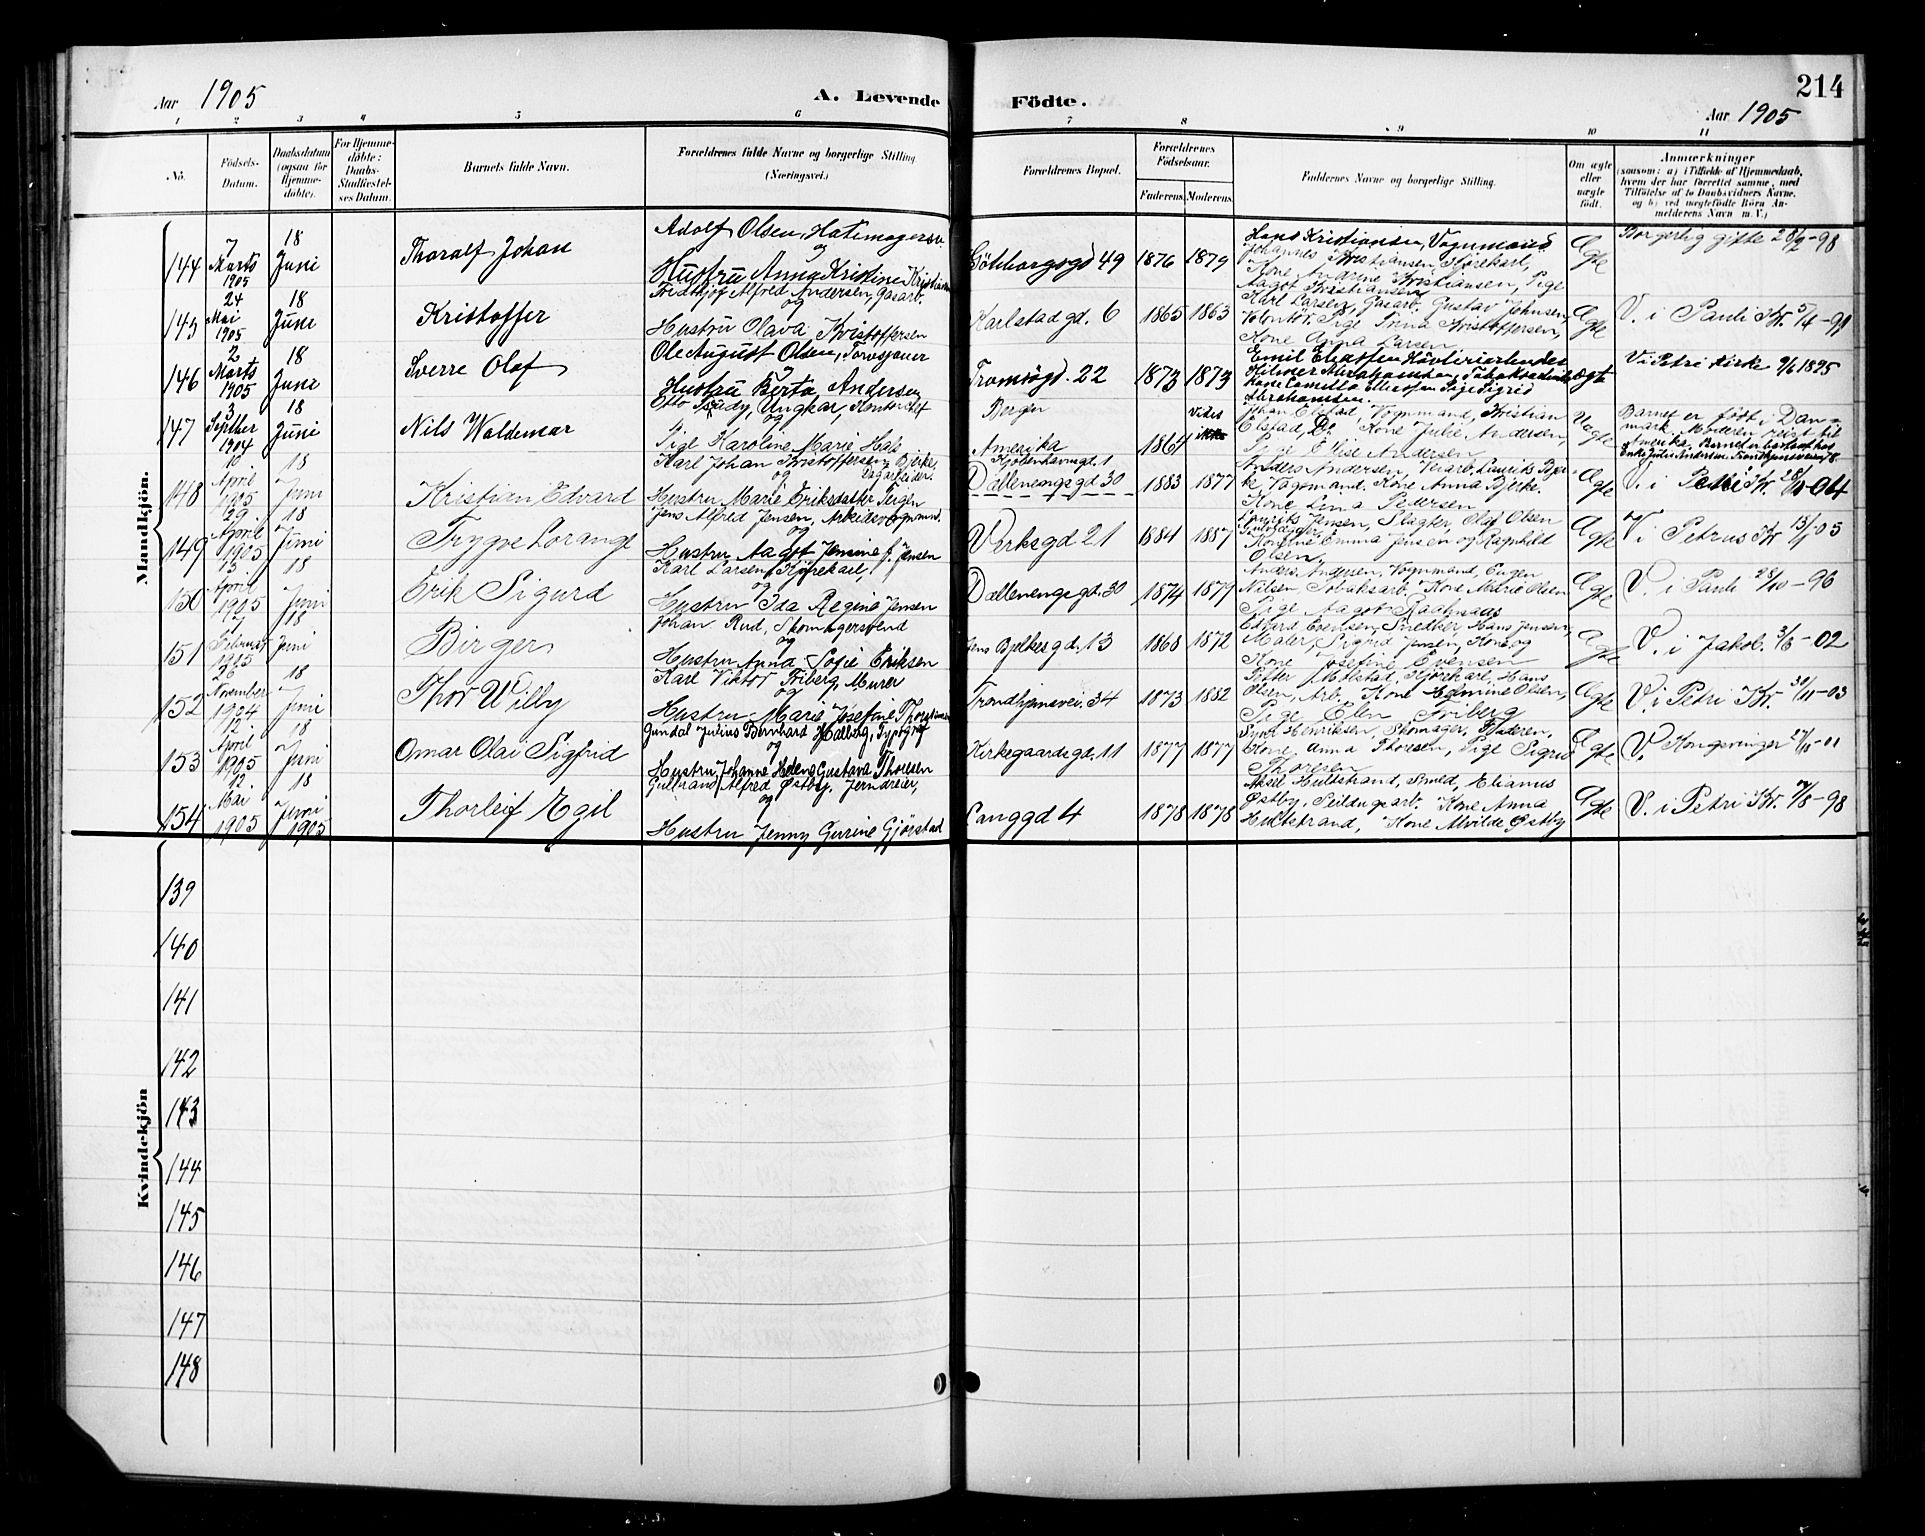 Aar 1905
A. Levende
Födte.
214
Aar 1905
1 2 3 4 5 6 7 8 9 10 11
No.
Födsels-Datum.
Daabsdatum (ogsaa for Hjemmedöbte).
For Hjemmedöbte: Daabs-Stadfæstelses Datum.
Barnets fulde Navn.
Forældrenes fulde Navne og borgerlige Stilling (Næringsvei.)
Forældrenes Bopæl.
Forældrenes Födselsaar.
Faderens.
Moderens.
Faddernes Navne og borgerlige Stilling.
Om ægte eller uægte födt.
Anmærkninger
(saasom: a) i Tilfælde af Hjemmedaab, hvem der har forrettet samme, med Tilföielse af to Daabsvidners Navne, og b) ved uægtefödte Börn Anmelderens Navn m. V.)
Mandkjön.
144
7 Marts 1905
18 Juni
Thoralf Johan
Adolf Olsen, Hatemagersv.
og
Hustru Anna Kristine Kristiansen
Götteborgsgd 49
1876 1879
Hans Kristiansen, Vognmand
Johannes Kristiansen, Kjørekarl,
Kone Andrine Kristiansen, Pige
Aagot Kristiansen
Ægte
Borgerlig gifte 28/2-98
145
24 Mai 1905
18 Juni
Kristoffer
Fridthjof Alfred Andersen, Gasarb.
og
Hustru Olava Kristoffersen
Karlstadgd. 6
1865 1863
Karl Larsen, Gasarb. Gustav Johnsen,
Volontör. Pige Anna Kristoffersen,
Kone Anna Larsen
Ægte
V. i Pauli Kr. 5/4-91
146
2 Marts 1905
18 Juni
Sverre Olaf
Ole August Olsen, Torvsjauer
og
Hustru Berta Andersen
Tromsögd. 22
1873 1873
Emil Eliassen
Kone Camilla Eliassen Pige Sigrid
Abrahamsen.
Ægte
V. i Petri Kirke 1895
147
3 Septber 1904
18 Juni
Nils Waldemar
Otto Ungkar, Kontorchef
og
Pige Karoline Marie Hals
Bergen
Amerika
1864
vides ikke
Johan Elstad, Vognmand, Kristian
Elstad, Do. Kone Julie Andersen,
Pige Elise Andersen
Uægte
Barnet er född i Danmark. Moderen reist til
Amerika. Barnet er bortsat hos
Enke Julie Andersen Trondhjemsvei 78.
148
10 April 1905
18 Juni
Kristian Edvard
Karl Johan Kristoffersen Bjerke,
og Cigarbeider.
Hustru Marie Eriksdatter Bergen
Kjøbenhavnsgt. 1
Dællenengsgd 30
1883 1877
Anders Andersen, Verarb. Laurits Bjerke, Vognmand. Kone Anna Bjerke.
Kone Lina Petersen
Ægte
V. i Petri Kr. 28/11-04
149
29 April 1905
18 Juni
Trygve Lorange
Jens Alfred Jensen, Arbeidsvognmd.
og
Hustru Aagot Jensine J. Jensen
Verksgd 21
1884 1887
Laurits Jensen, Slagter, Olaf Olsen
Konerne Emma Jensen og Ragnhild
Olsen,
Ægte
V. i Petrus Kr 15/1-05
150
13 April 1905
18 Juni
Erik Sigurd
Karl Larsen, Kjørekarl,
og
Hustru Ida Regine Jensen
Dællenengsgd. 30
1874 1879
Anders Andersen, Vognmand, Eugen
Nilsen, Tobaksarb. Kone Marie Olsen
Pige Aagot Raahnaas
Ægte
V. i Pauli 28/10-96
151
7 Februar 1905
18 Juni
Birger
Johan Rud, Skomagersvend
og
Hustru Anna Sofie Eriksen
Jens Bjelkesgd. 13
1868 1872
Edvard Evensen, Snedker Hans Jensen,
Maler, Sigrid Jensen, Kone og
Kone Josefine Evensen
Ægte
V. i Jakob. 3/6-02
152
26 November 1904
18 Juni
Thor Willy
Karl Viktor Friberg, Murer
og
Hustru Marie Josefine Thorstensen
Trondhjemsvei. 34
1873 1882
Peter Milstad, Kjørekarl, Hans
Olsen, Arb. Kone Helmine Olsen,
Pige Elen Friberg
Ægte
V. i Petri Kr. 30/11-03
153
12 April 1905
18 Juni
Omar Olai Sigfrid
Gundal Julius Bernhard Halberg, Typograf
og
Hustru Johanne Helene Gustava Thoresen
Kirkegaardsgd. 11
1877 1877
Syver Henriksen, Skomager, Faderen,
Kone Anna Thoresen, Pige Sigrid
Thoresen
Ægte
V. Kongsvinger 27/11-01
154
12 Mai 1905
18 Juni 1905
Thorleif Egil
Gulbrand Alfred Østby, Jerndreier,
og
Hustru Jenny Gurine Gjørstad
Langgd 4
1878 1878
Aksel Hultstrand, Smed, Elianus
Østby, Seildugsarb. Kone Anna
Hultstrand, Kone Alvilde Østby
Ægte
V. i Petri Kr. 7/8-98
Kvindekjön
139
140
141
142
143
144
145
146
147
148